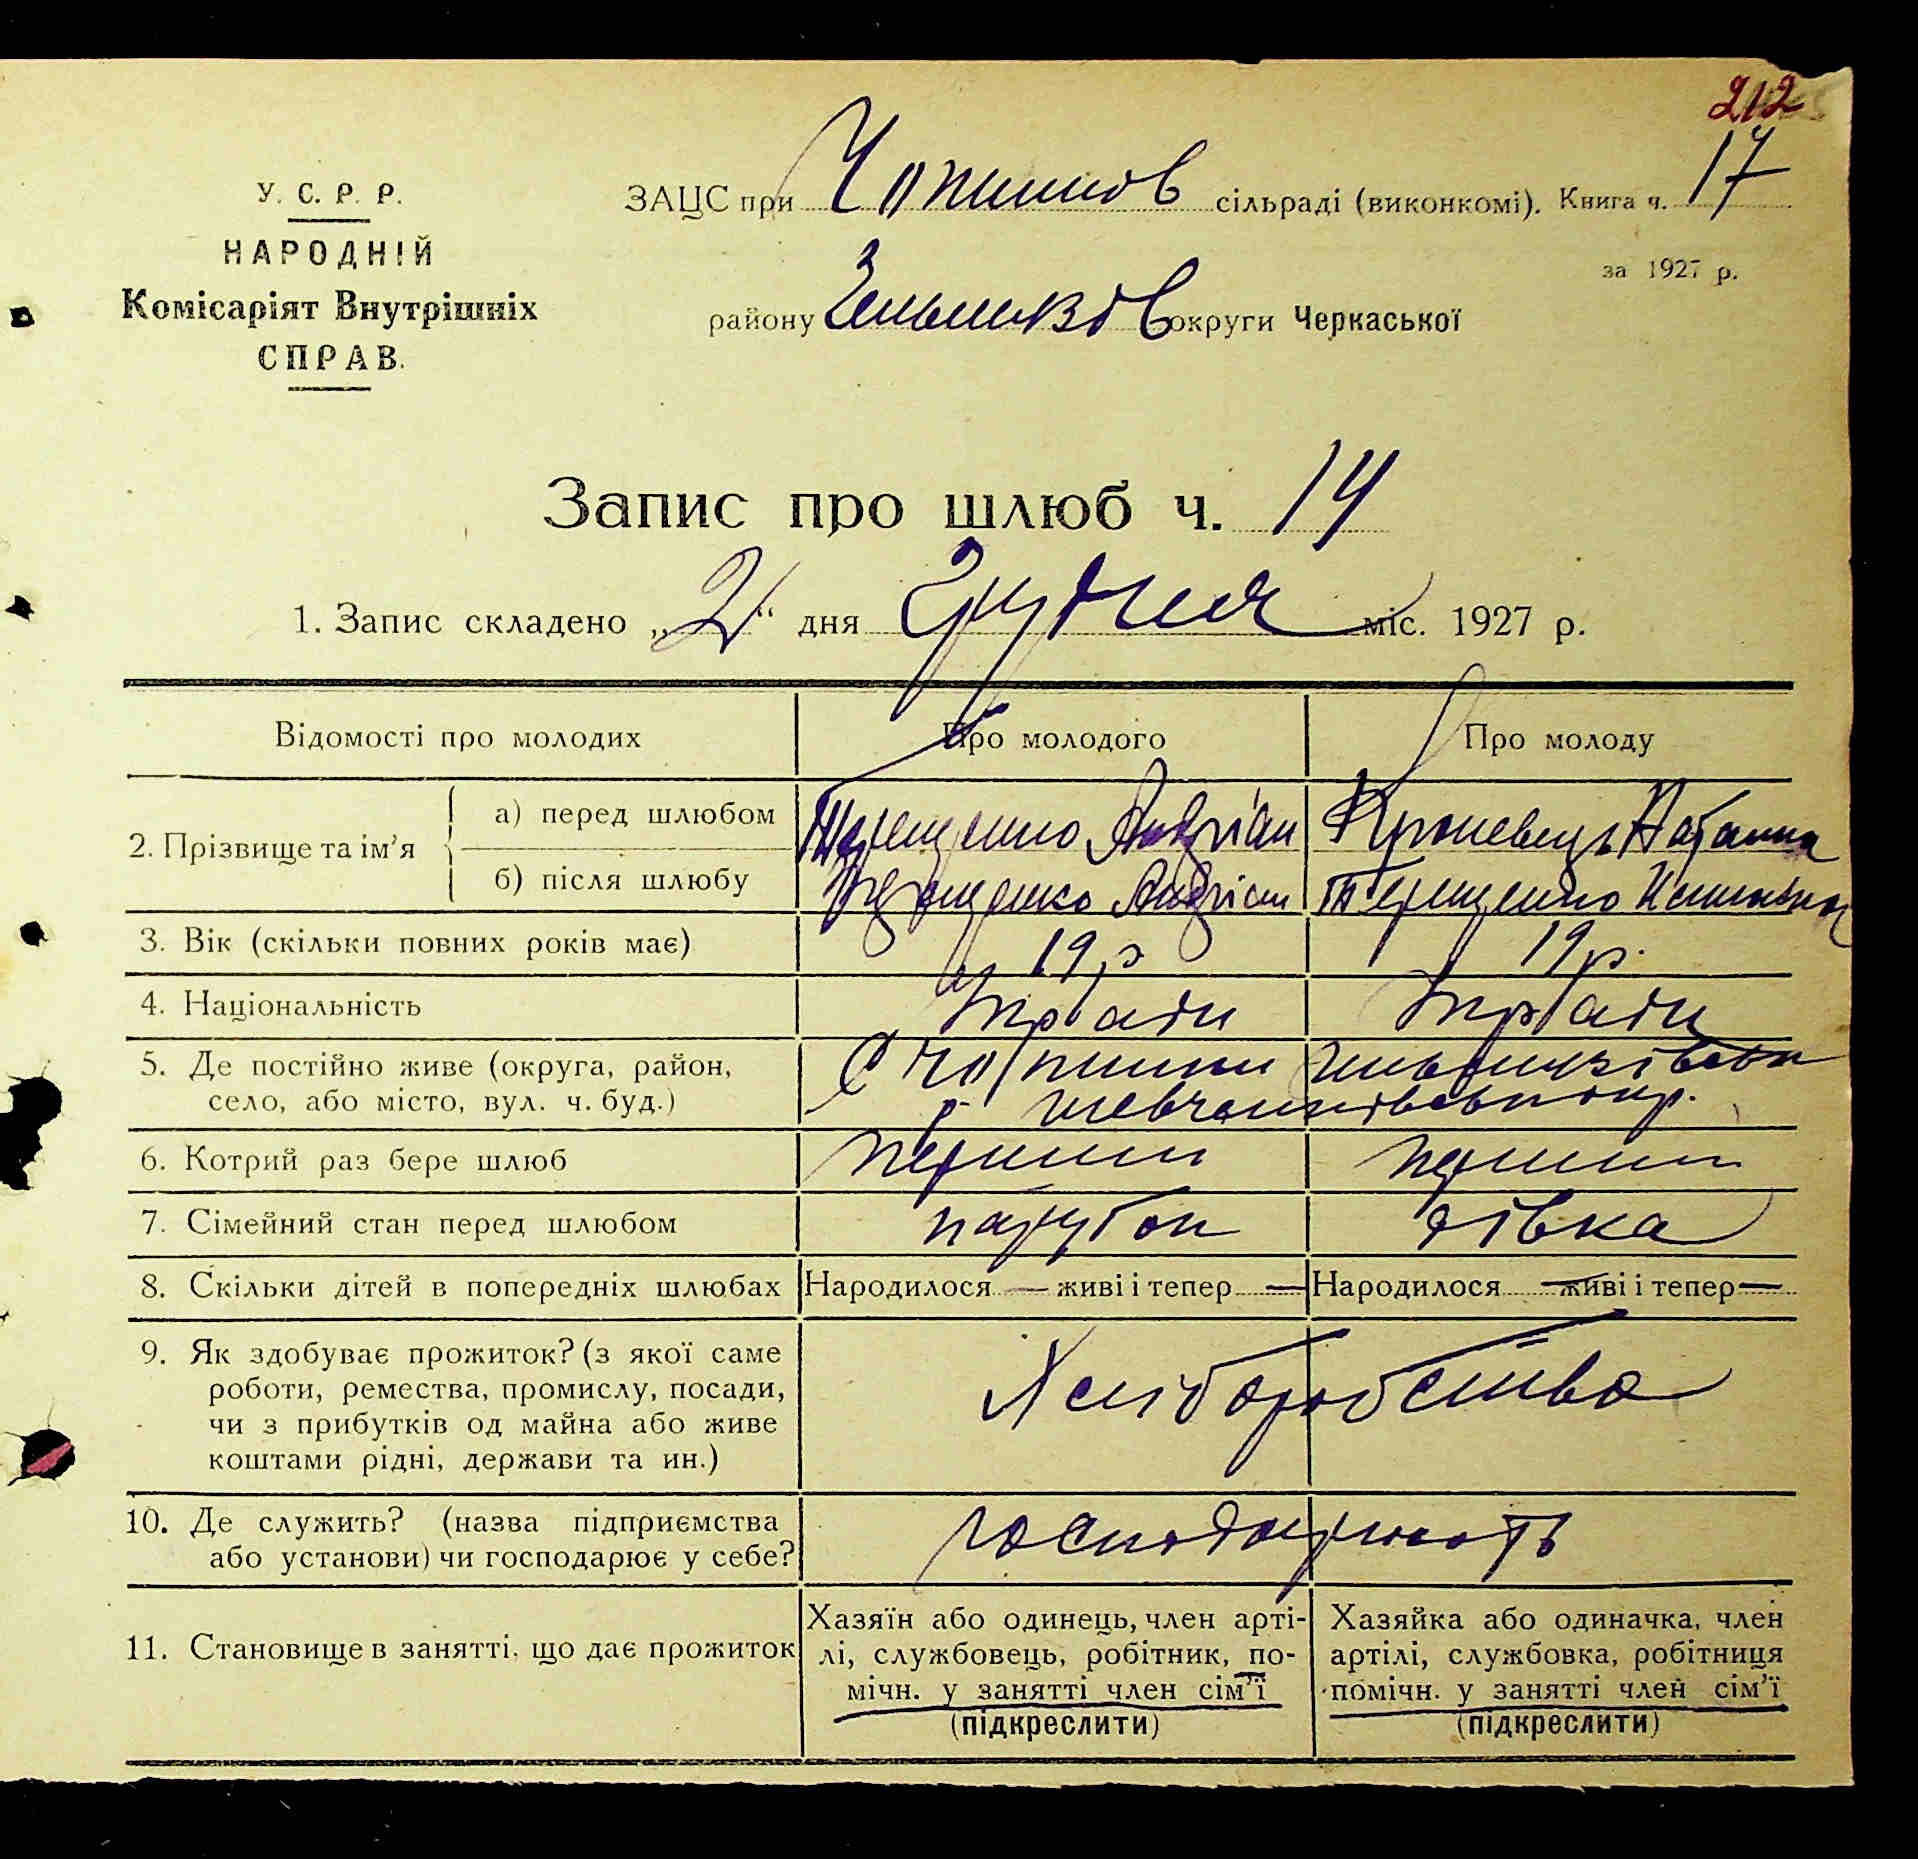 212
У. С. Р. Р.
НАРОДНІЙ
Комісаріят Внутрішніх
СПРАВ.
ЗАЦС при Чопинов сільраді (виконкомі). Книга ч. 17
за 1927 р.
району округи Черкаської
Запис про шлюб ч. 14
1. Запис складено „2“ дня Грудня міс. 1927 р.
Відомості про молодих Про молодого Про молоду
2. Прізвище та ім'я
а) перед шлюбом Терещенко Андріан
б) після шлюбу Терещенко Андріан Терещенко
3. Вік (скільки повних років має) 19 р 19 р.
4. Національність
5. Де постійно живе (округа, район,
село, або місто, вул. ч. буд.) р. Шевченківської окр.
6. Котрий раз бере шлюб перший перший
7. Сімейний стан перед шлюбом парубок дівка
8. Скільки дітей в попередніх шлюбах Народилося — живі і тепер — Народилося — живі і тепер —
9. Як здобуває прожиток? (з якої саме
роботи, ремества, промислу, посади,
чи з прибутків од майна або живе
коштами рідні, держави та ин.)
Хліборобства
10. Де служить? (назва підприємства
або установи) чи господарює у себе?
господарюють
11. Становище в занятті, що дає прожиток
Хазяїн або одинець, член арті-
лі, службовець, робітник, по-
мічн. у занятті член сім'ї
(підкреслити)
Хазяйка або одиначка, член
артілі, службовка, робітниця
помічн. у занятті член сім'ї
(підкреслити)